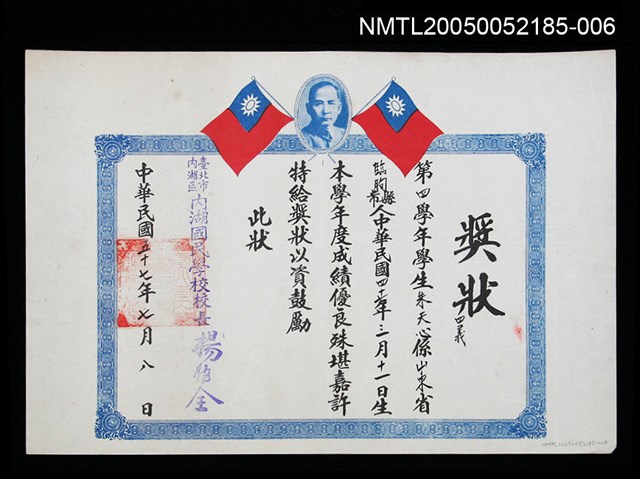 NMTL20050052185-006
獎狀
四義
第四學年學生朱天心係山東省
臨朐縣人中華民國四十七年三月十一日生
本學年度成績優良殊堪嘉許
特給獎狀以資鼓勵
此狀
臺北市內湖區內湖國民學校校長楊
中華民國五十七年七月八日